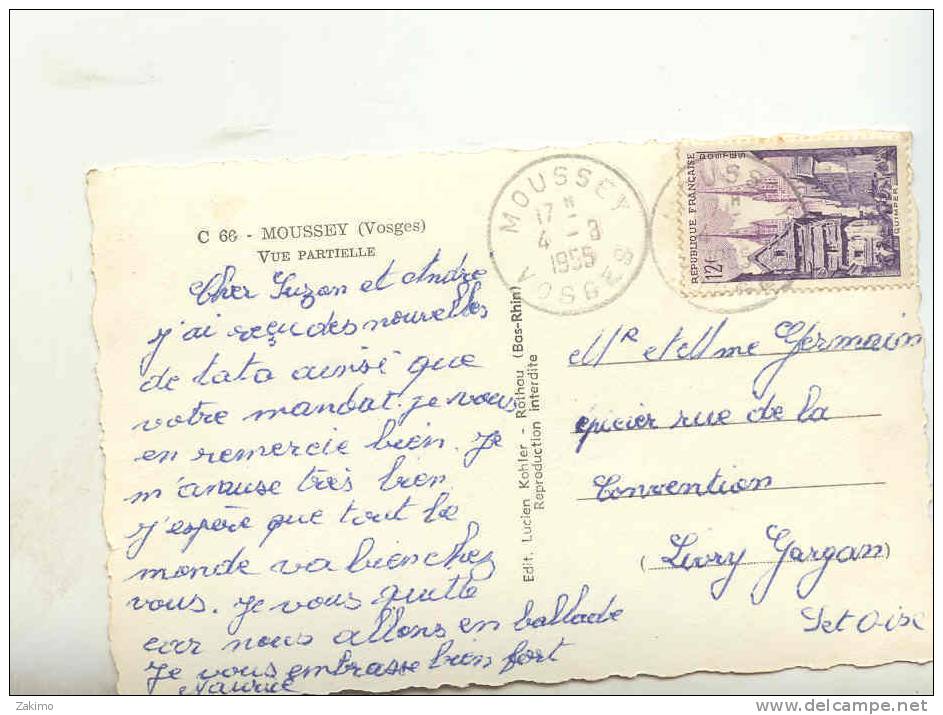 C 66 - MOUSSEY (Vosges)
VUE PARTIELLE
Cher Suzon et Andre
j'ai reçu des nouvelles
de tata ainsi que
votre mandat. je vous
en remercie bien. Je
m'amuse très bien
j'espère que tout le
monde va bien chez
vous. Je vous quitte
car nous allons en ballade
Je vous embrasse bien fort
Edit. Lucien Kohler - Rothau (Bas-Rhin)
Reproduction interdite
MOUSSEY
17 H
4 - 8
1955
VOSGES
POSTES
RÉPUBLIQUE FRANÇAISE
12F
QUIMPER
Mr et Mme Germain
épicier rue de la
Convention
(Livry Gargan)
Set Oise
Zakimo
www.delcampe.net